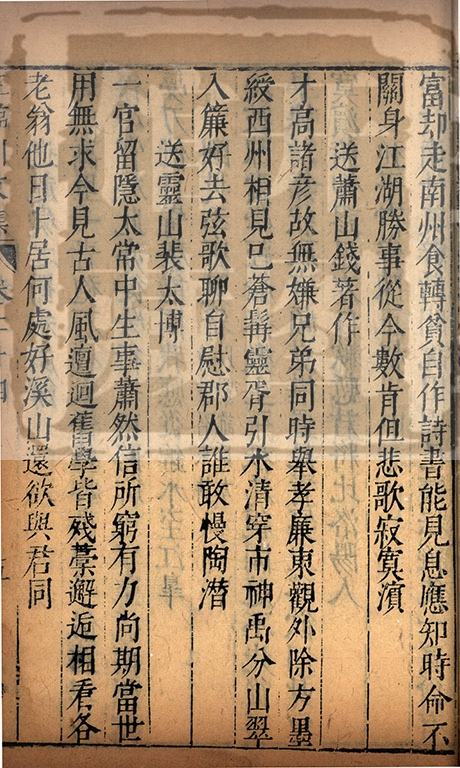 富却走南州食轉貧自作詩書能見息應知時命不
關身江湖勝事從今數肯但悲歌寂寞濵
送蕭山錢著作
才高諸彦故無嫌兄弟同時舉孝廉東觀外除方墨
綬西州相見已蒼髯靈胥引水清穿市神禹分山翠
入簾好去弦歌聊自慰郡人誰敢慢陶潛
送靈山裴太博
一官留隱太常中生事蕭然信所窮有力尚期當世
用無求今見古人風邅迴舊學皆殘藁邂逅相看各
老翁他日卜居何處好溪山還欲與君同